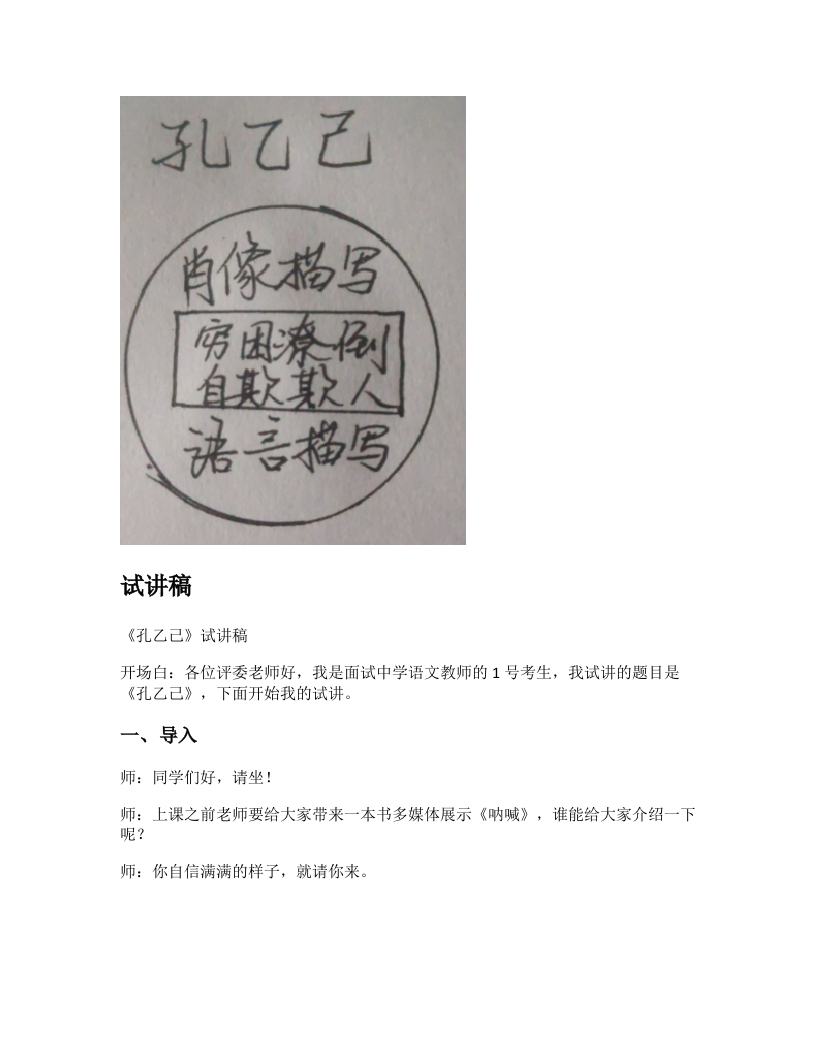 孔乙己
肖像描写
穷困潦倒
自欺欺人
语言描写
试讲稿
《孔乙己》试讲稿
开场白：各位评委老师好，我是面试中学语文教师的 1 号考生，我试讲的题目是
《孔乙己》，下面开始我的试讲。
一、导入
师：同学们好，请坐！
师：上课之前老师要给大家带来一本书多媒体展示《呐喊》，谁能给大家介绍一下
呢？
师：你自信满满的样子，就请你来。